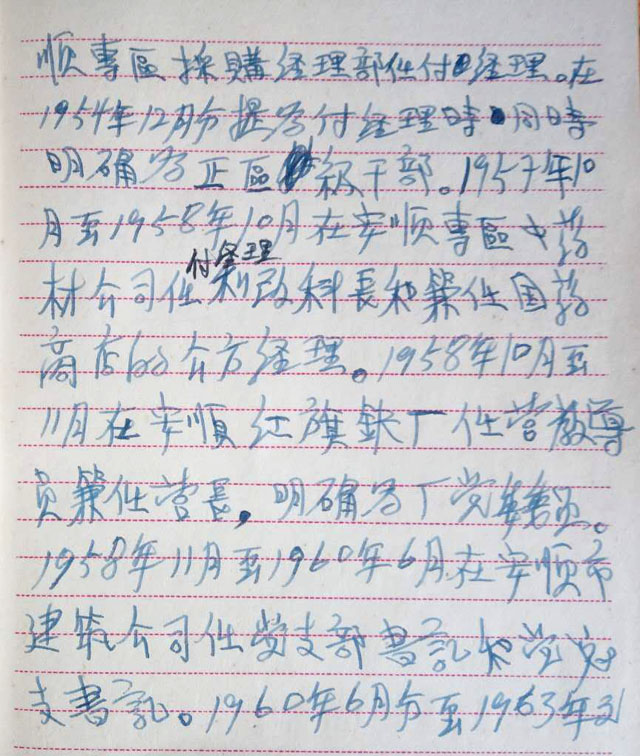 順專區採購经理部任付经理。在
1954年12月份提为付经理時同時
明确为正區级干部。1957年10
月至1958年10月在安順專區中药
付经理
材公司任私改科長和兼任国药
商店的公方经理。1958年10月至
11月在安順红旗鉄厂任营教導
員兼任营長,明确为厂党委。
1958年11月至1960年6月在安順市
建筑公司任党支部書記和党
支書記。1960年6月份至1963年3